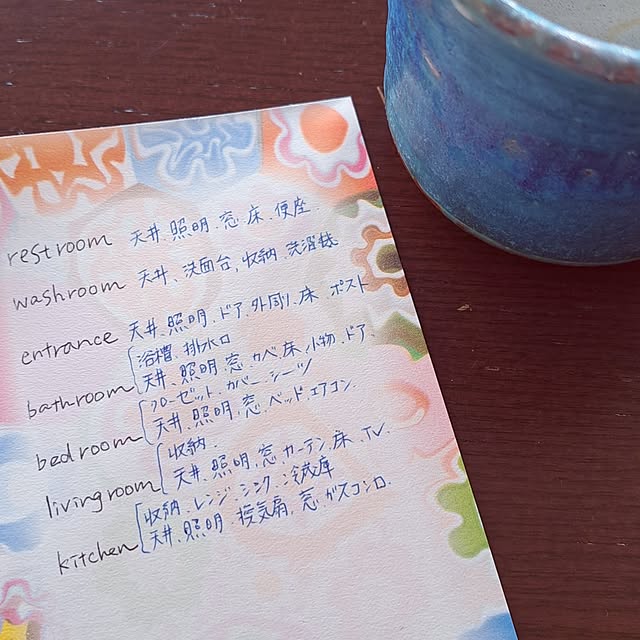 restroom 天井、照明、窓、床、便座
washroom 天井、洗面台、収納、洗濯機
entrance 天井、照明、ドア、外回り、床、ポスト
浴槽、排水口
bathroom 天井、照明、窓、カベ、床、小物、ドア、
クローゼット、カバー、シーツ
bedroom 天井、照明、窓、ベッド、エアコン、
収納、
livingroom 天井、照明、窓、カーテン、床、TV、
収納、レンジ、シンク、冷蔵庫
kitchen 天井、照明、換気扇、窓、ガスコンロ、